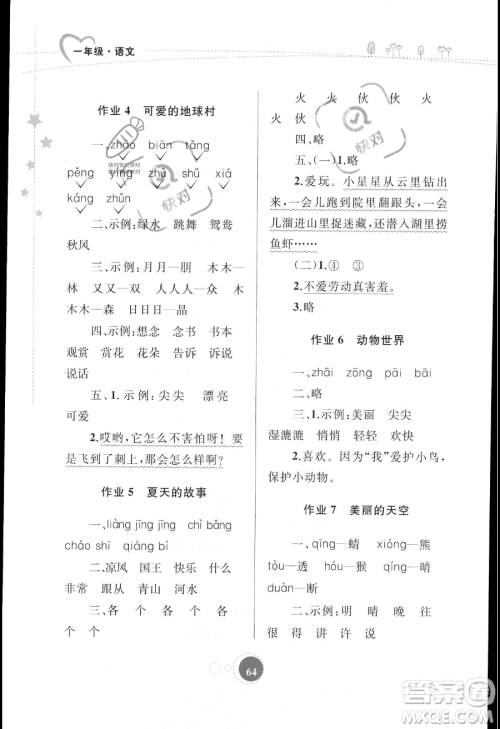 一年级·语文
作业 4 可爱的地球村
一、zhǎo biǎn tǎng
pěng yíng zhǐ shǔ xiá
káng zhǔn
二、示例：绿水 跳舞 鸳鸯
秋风
三、示例：月月—朋 木木—
林 又又—双 人人人—众 木
木木—森 日日日—晶
四、示例：想念 念书 书本
观赏 赏花 花朵 告诉 诉说
说话
五、1.示例：尖尖 漂亮
可爱
2.哎哟，它怎么不害怕呀！要
是飞到了刺上，那就糟糕啦！
作业 5 夏天的故事
一、liàng jīng jīng chì bǎng
cháo shī qiáng bì
二、凉风 国王 快乐 什么
非常 跟从 青山 河水
三、各 个 个 各 各 个
个 个
火 火 伙 伙 火
火 伙 火
四、略
五、（一）1.略
2.爱玩。小星星从云里钻出
来，一会儿跑到院里翻跟头，一会
儿溜进山里捉迷藏，还潜入湖里捞
鱼虾……
（二）1.④ ③
2.不爱劳动真害羞。
3.略
作业 6 动物世界
一、zhāi zōng pāi bāi
二、略
三、1.示例：美丽 尖尖
湿漉漉 悄悄 轻轻 欢快
2.喜欢。因为“我”爱护小鸟，
保护小动物。
作业 7 美丽的天空
一、qīng—蜻 xióng—熊
tòu—透 hóu—猴 yíng—蝇
duàn—断
二、示例：明 晴 晚 往
很 得 讲 许 说
64
快对
快对
答案圈
MXQE.COM